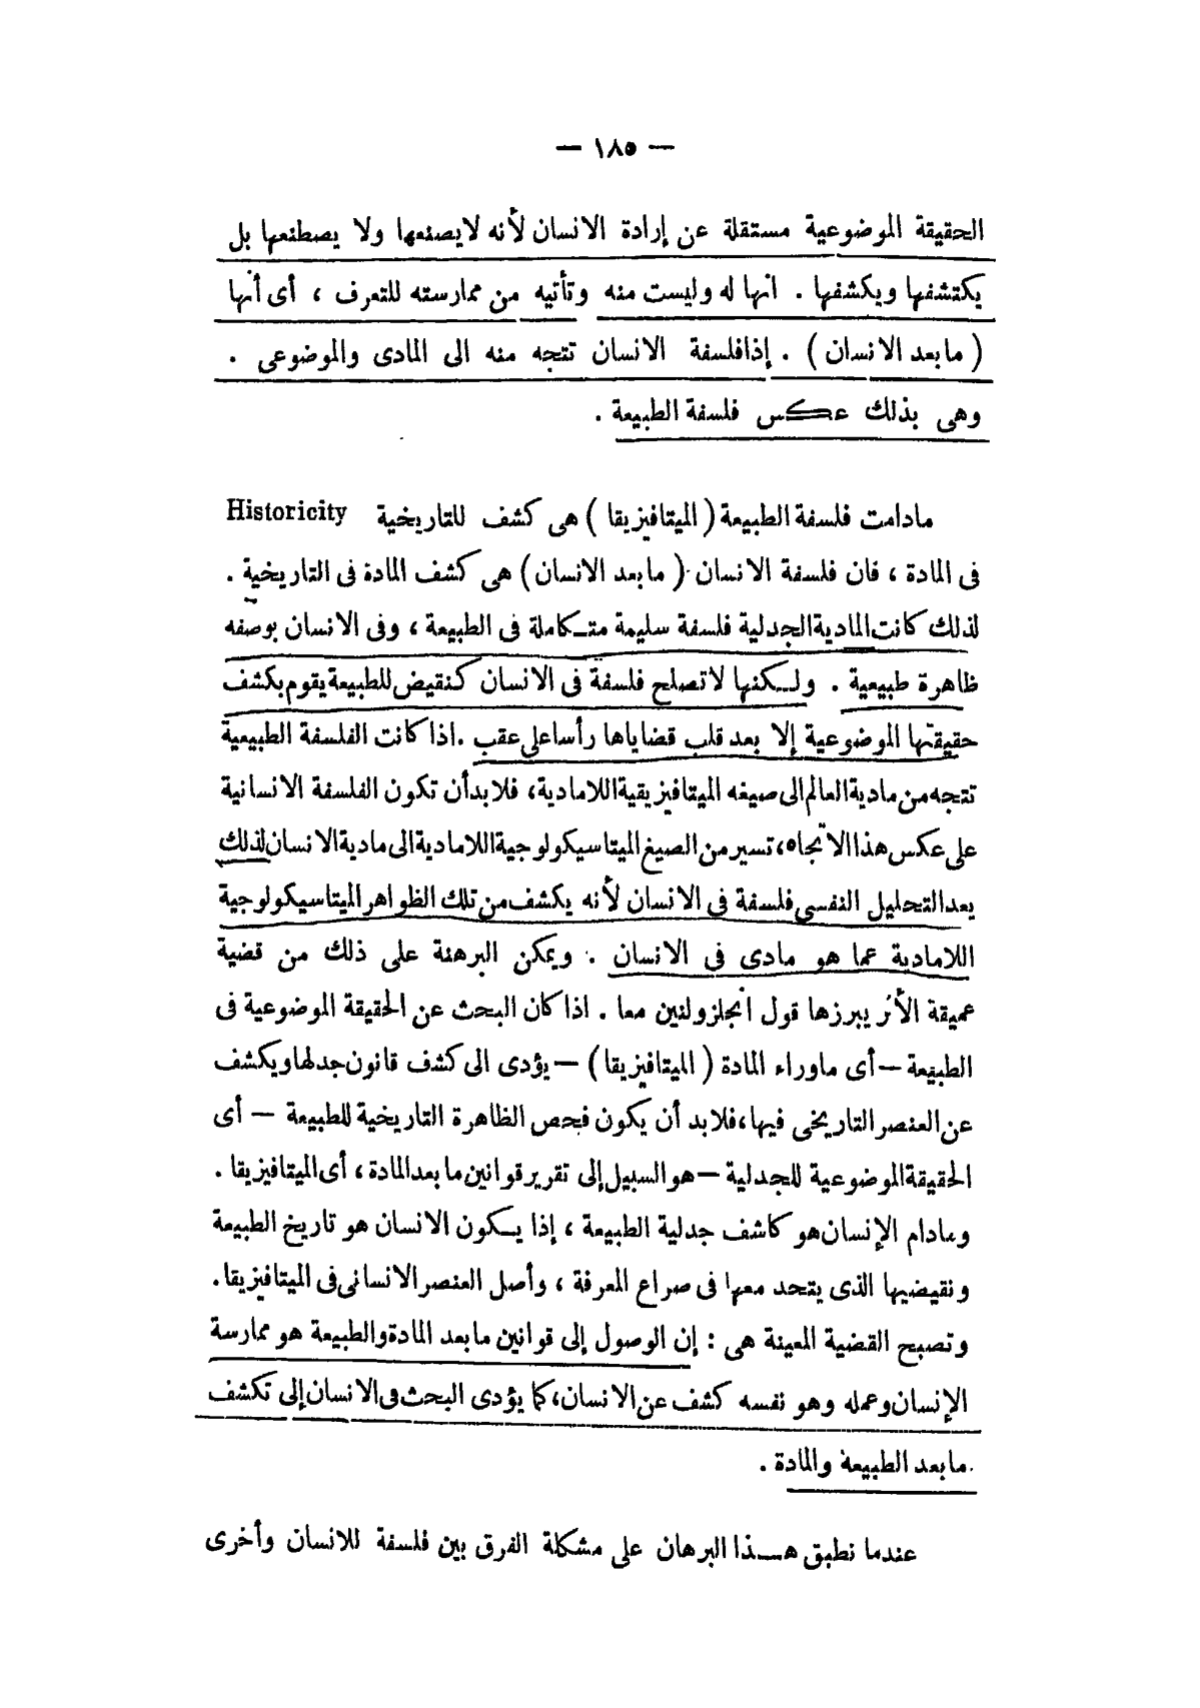 — ١٨٥ —
الحقيقة الموضوعية مستقلة عن إرادة الانسان لأنه لايصنعها ولا يصطنعها بل
يكتشفها ويكشفها . انها له وليست منه وتأتيه من ممارسته للتعرف ، أى أنها
( مابعد الانسان ) . إذا فلسفة الانسان تتجه منه الى المادى والموضوعى .
وهى بذلك عكس فلسفة الطبيعة .
مادامت فلسفة الطبيعة ( الميتافيزيقا ) هى كشف للتاريخية Historicity
فى المادة ، فان فلسفة الانسان ( مابعد الانسان ) هى كشف المادة فى التاريخية .
لذلك كانت المادية الجدلية فلسفة سليمة متكاملة فى الطبيعة ، وفى الانسان بوصفه
ظاهرة طبيعية . ولكنها لا تصلح فلسفة فى الانسان كنقيض للطبيعة يقوم بكشف
حقيقتها الموضوعية إلا بعد قلب قضاياها رأسا على عقب . اذا كانت الفلسفة الطبيعية
تتجه من مادية العالم الى صيغه الميتافيزيقية اللامادية ، فلابد أن تكون الفلسفة الانسانية
على عكس هذا الاتجاه ، تسير من الصيغ الميتاسيكولوجية اللامادية الى مادية الانسان لذلك
يعد التحليل النفسى فلسفة فى الانسان لأنه يكشف من تلك الظواهر الميتاسيكولوجية
اللامادية عما هو مادى فى الانسان . ويمكن البرهنة على ذلك من قضية
عميقة الأثر يبرزها قول انجلز ولنين معا . اذا كان البحث عن الحقيقة الموضوعية فى
الطبيعة — أى ماوراء المادة ( الميتافيزيقا ) — يؤدى الى كشف قانون جدلها ويكشف
عن العنصر التاريخى فيها ، فلابد أن يكون فحص الظاهرة التاريخية للطبيعة — أى
الحقيقة الموضوعية للجدلية — هو السبيل إلى تقرير قوانين ما بعد المادة ، أى الميتافيزيقا .
ومادام الإنسان هو كاشف جدلية الطبيعة ، إذا يكون الانسان هو تاريخ الطبيعة
ونقيضيها الذى يتحد معها فى صراع المعرفة ، وأصل العنصر الانسانى فى الميتافيزيقا .
وتصبح القضية المعينة هى : إن الوصول إلى قوانين مابعد المادة والطبيعة هو ممارسة
الإنسان وعمله وهو نفسه كشف عن الانسان ، كما يؤدى البحث فى الانسان إلى تكشف
مابعد الطبيعة والمادة .
عندما نطبق هذا البرهان على مشكلة الفرق بين فلسفة للانسان وأخرى